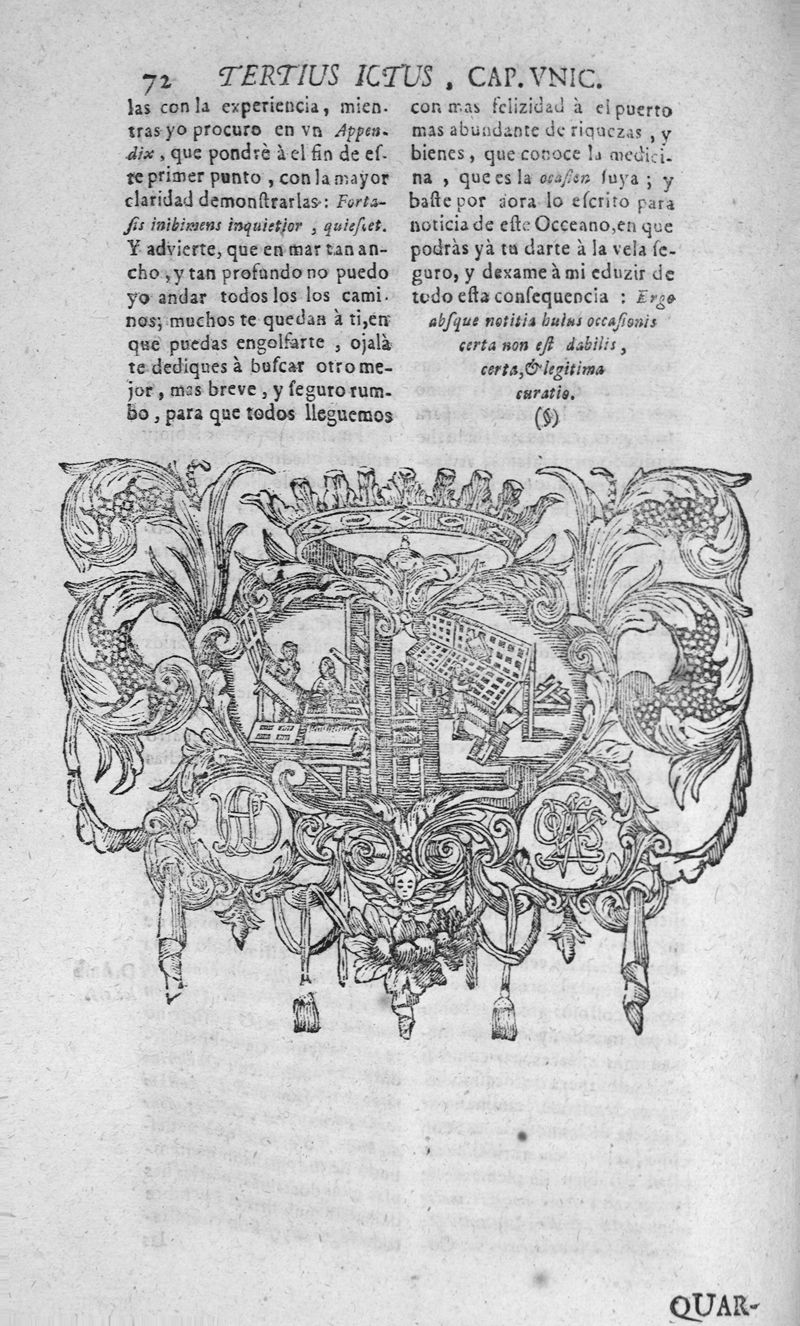 72 TERTIUS ICTUS, CAP. VNIC.
las con la experiencia, mien-
tras yo procuro en vn Appen-
dix, que pondrè à el fin de eſ-
te primer punto, con la mayor
claridad demonſtrarlas: Forta-
ſis inibi mens inquietior, quieſcet.
Y advierte, que en mar tan an-
cho, y tan profundo no puedo
yo andar todos los los cami-
nos; muchos te quedan à ti, en
que puedas engolfarte, ojalà
te dediques à buſcar otro me-
jor, mas breve, y ſeguro rum-
bo, para que todos lleguemos
con mas felizidad à el puerto
mas abundante de riquezas, y
bienes, que conoce la medici-
na, que es la ocaſion ſuya; y
baſte por aora lo eſcrito para
noticia de eſte Occeano, en que
podràs yà tu darte à la vela ſe-
guro, y dexame à mi eduzir de
todo eſta conſequencia: Ergo
abſque notitia huius occaſionis
certa non eſt dabilis,
certa, & legitima
curatio.
(§)
QUAR-